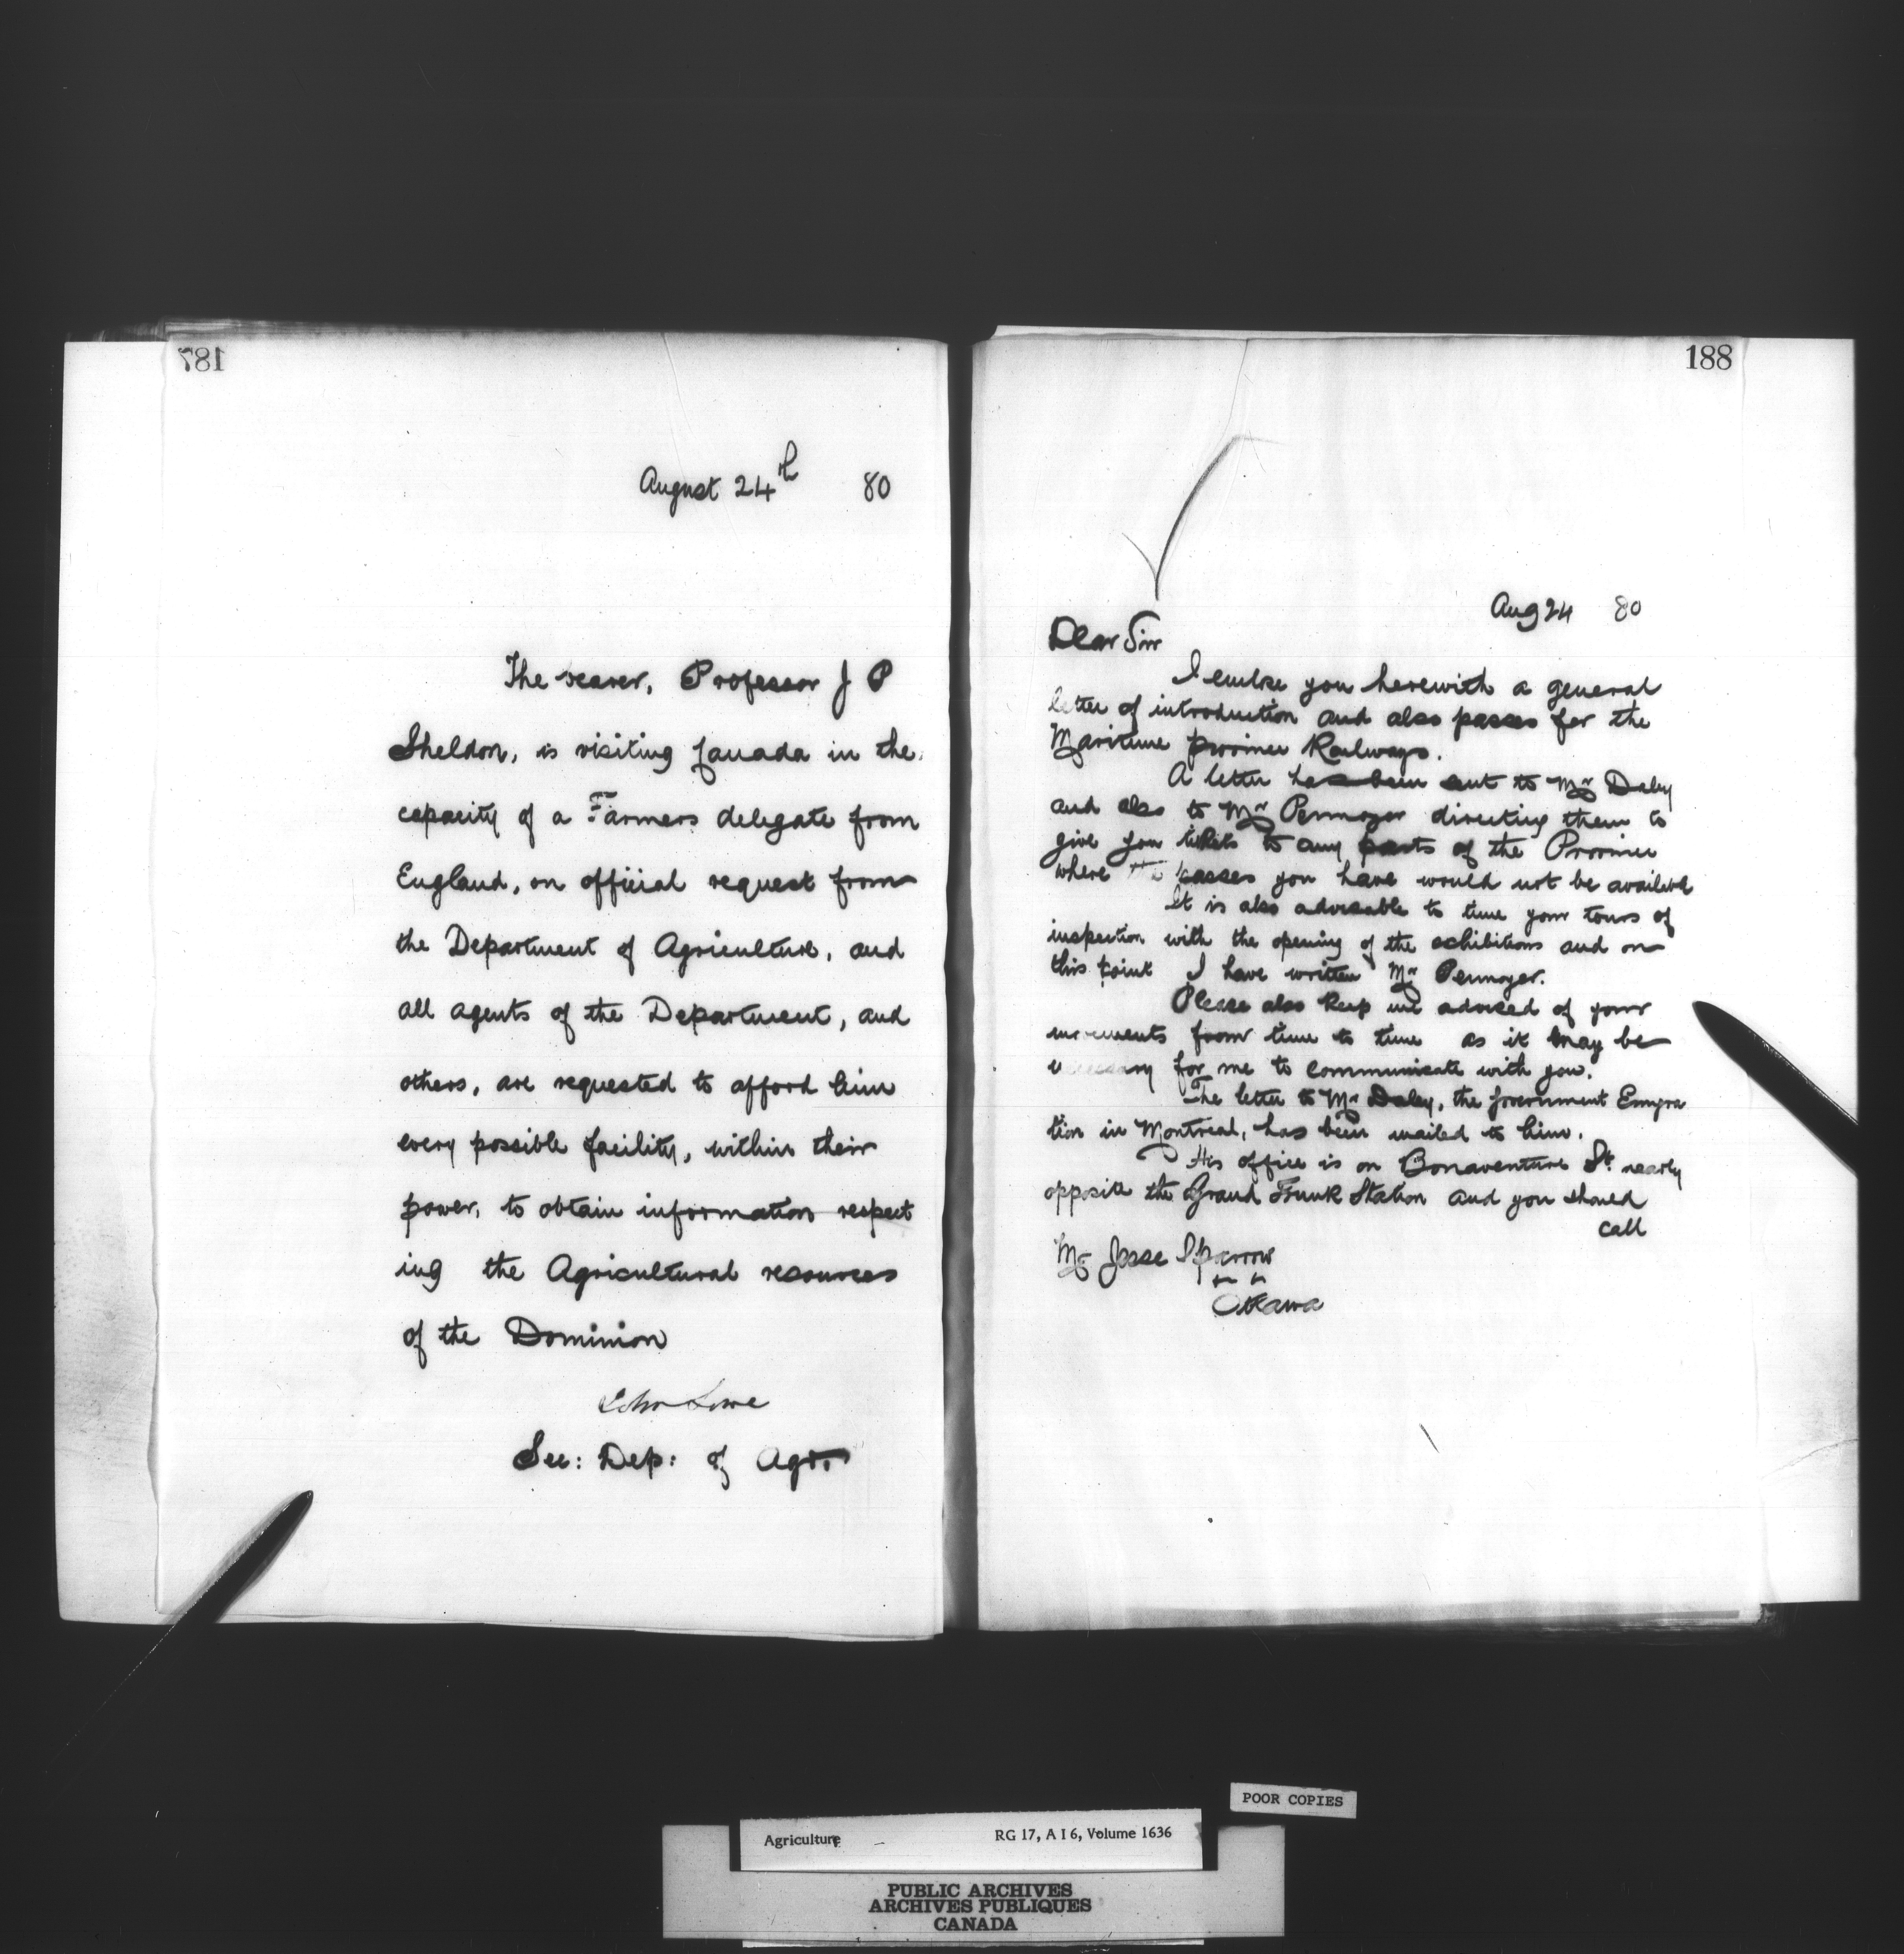 187
August 24th 80
The bearer, Professor J P
Sheldon, is visiting Canada in the
capacity of a Farmers delegate from
England, on official request from
the Department of Agriculture, and
all agents of the Department, and
others, are requested to afford him
every possible facility, within their
power, to obtain information respect
ing the Agricultural resources
of the Dominion
John Lowe
Sec: Dep: of Agr.
188
Aug 24 80
Dear Sir
I enclose you herewith a general
letter of introduction and also passes for the
Maritime province Railways.
A letter has been sent to Mr Daley
and also to Mr Pennoyer directing them to
give you tickets to any parts of the Province
where the passes you have would not be available
It is also adviseable to time your tours of
inspection with the opening of the exhibitions and on
this point I have written Mr Pennoyer.
Please also keep me advised of your
movements from time to time as it may be
necessary for me to communicate with you.
The letter to Mr Daley, the Government Emigra
tion in Montreal, has been mailed to him.
His office is on Bonaventure St. nearly
opposite the Grand Trunk Station and you should
call
Mr Jesse Sparrow
Ottawa
POOR COPIES
Agriculture RG 17, A I 6, Volume 1636
PUBLIC ARCHIVES
ARCHIVES PUBLIQUES
CANADA